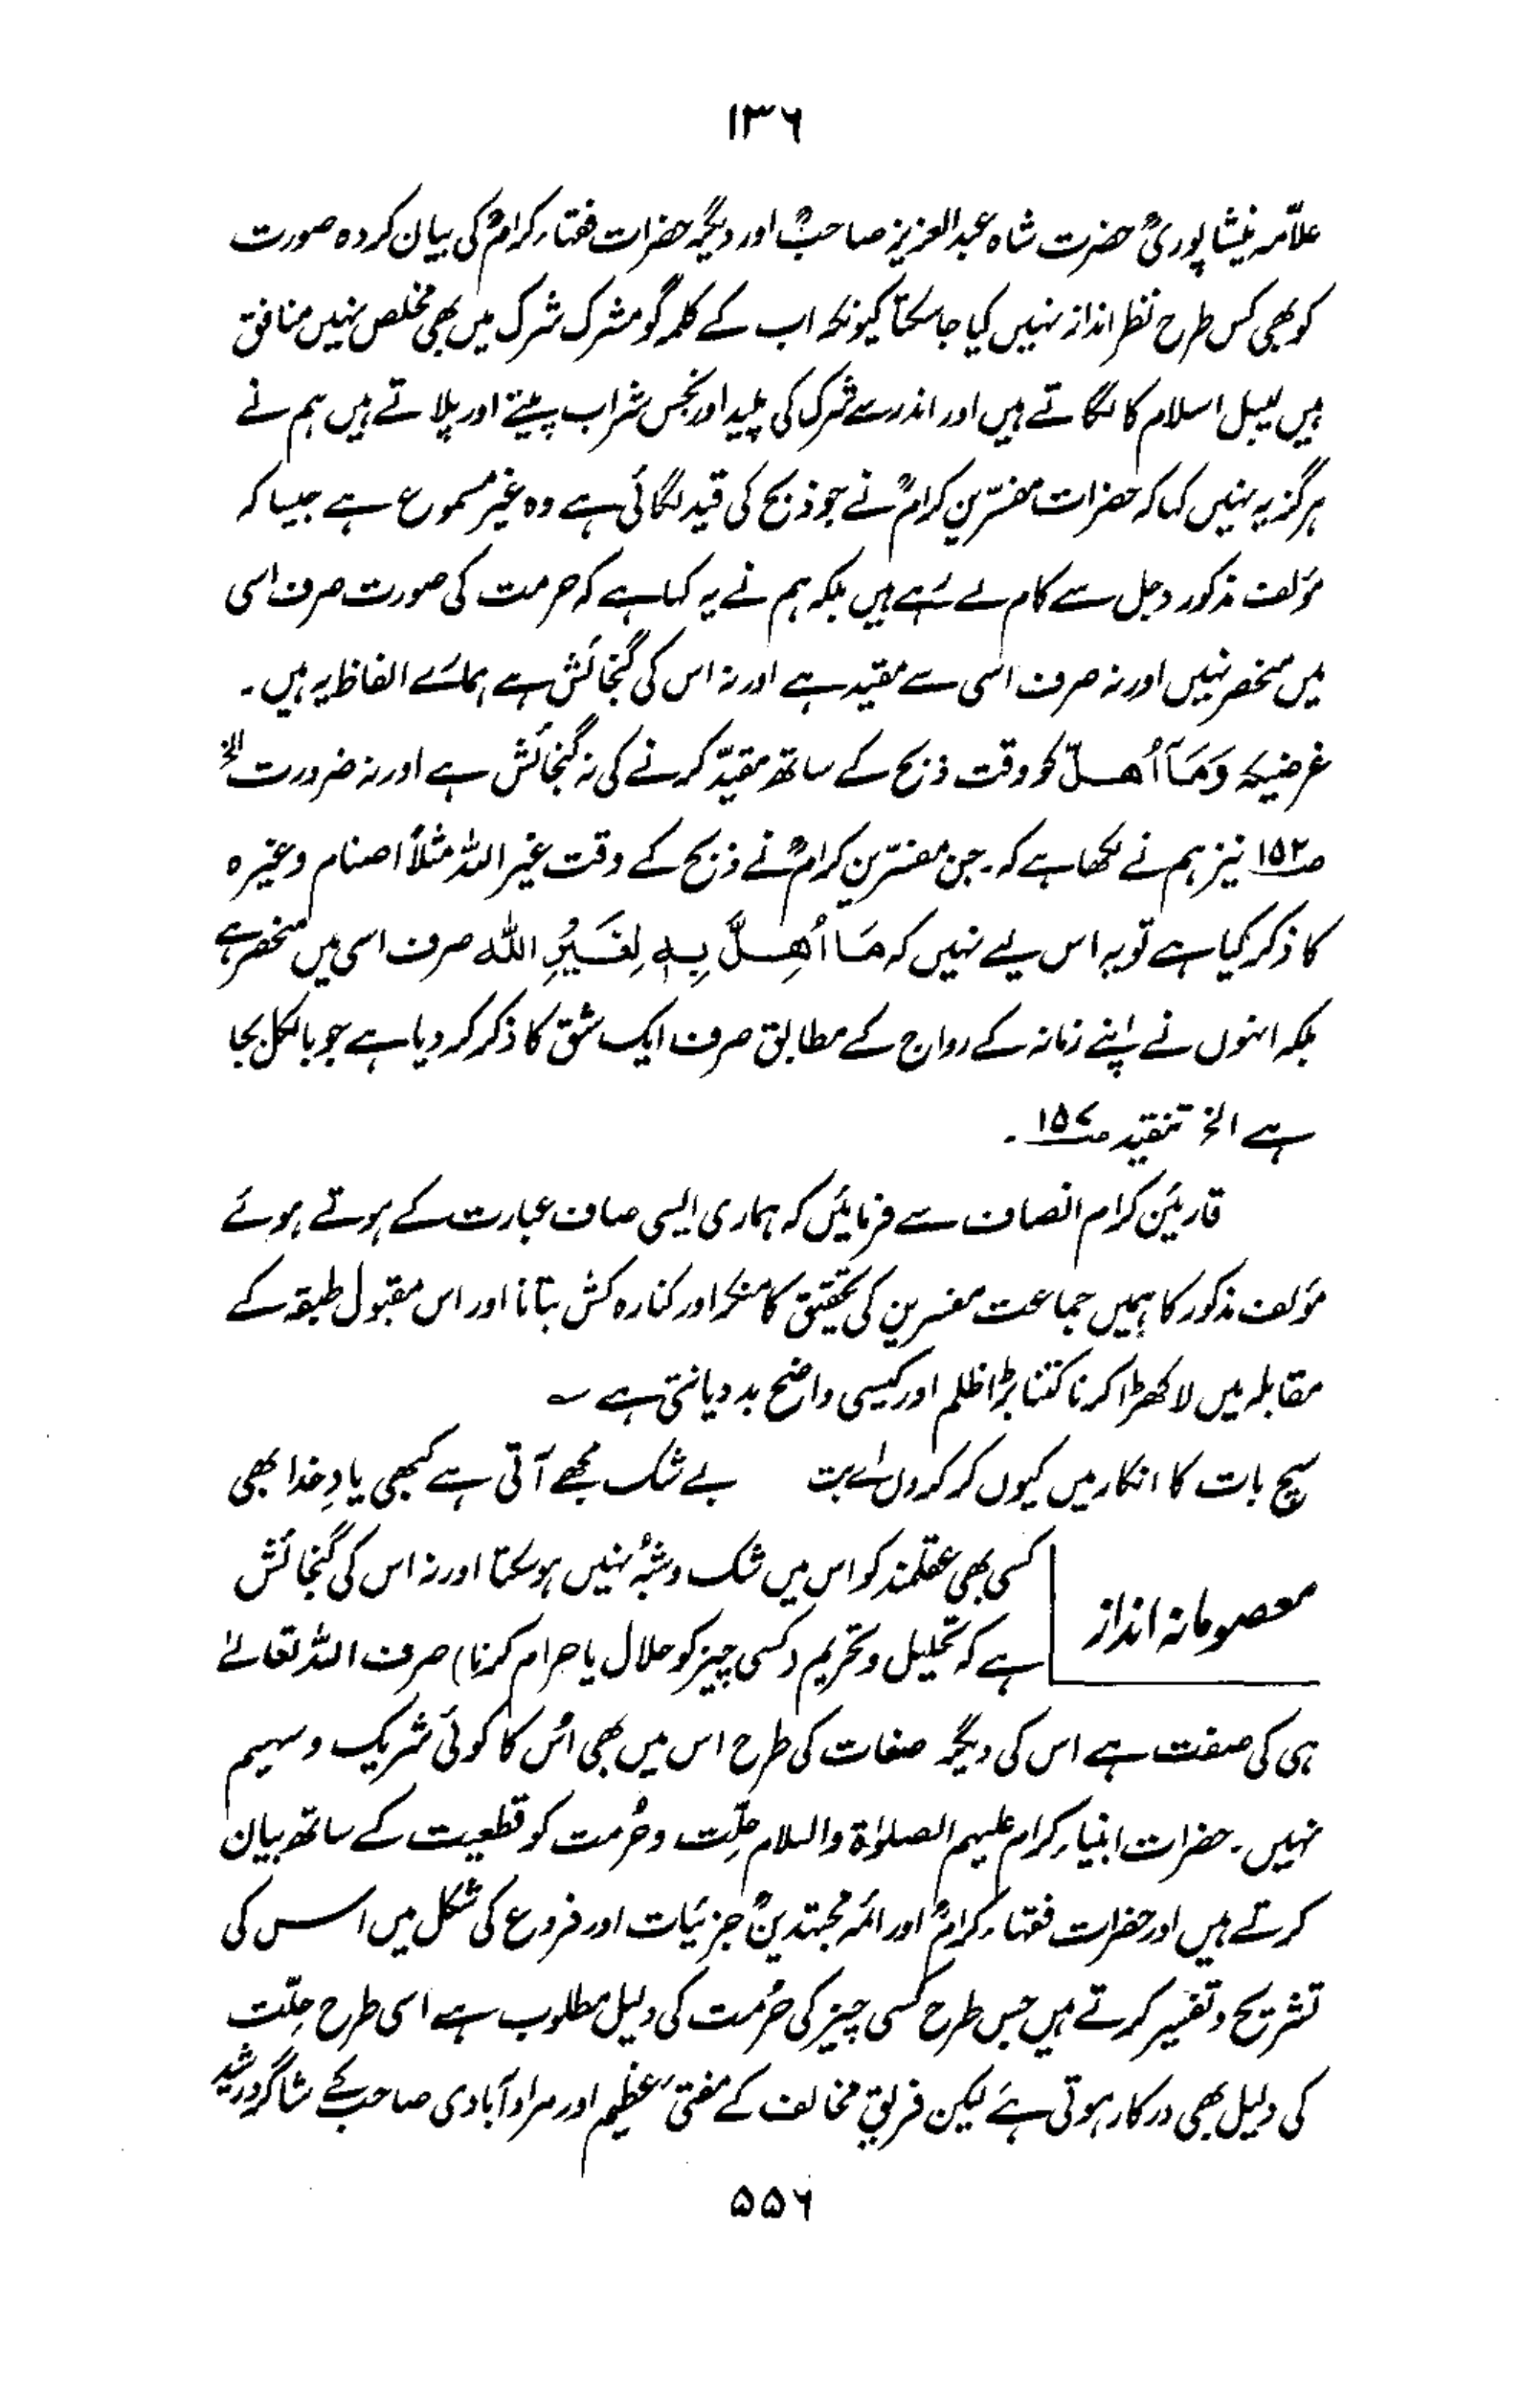 ۱۳۶
علاّمہ نیشاپوریؒ حضرت شاہ عبدالعزیز صاحبؒ اور دیگر حضرات فقہاء کرامؒ کی بیان کردہ صورت
کو بھی کس طرح نظر انداز نہیں کیا جا سکتا کیونکہ اب کے کلمہ گو مشرک شرک میں بھی مخلص نہیں منافق
ہیں لیبل اسلام کا لگاتے ہیں اور اندر سے شرک کی پلید اور نجس شراب پیتے اور پلاتے ہیں ہم نے
ہرگز یہ نہیں کہا کہ حضرات مفسّرین کرامؒ نے جو ذبح کی قید لگائی ہے وہ غیر مسموع ہے جیسا کہ
مؤلف مذکور دجل سے کام لے رہے ہیں بلکہ ہم نے یہ کہا ہے کہ حرمت کی صورت صرف اسی
میں منحصر نہیں اور نہ صرف اسی سے مقید ہے اور نہ اس کی گنجائش ہے ہمارے الفاظ یہ ہیں۔
غرضیکہ وَمَآ اُھِلَّ کو وقت ذبح کے ساتھ مقیّد کرنے کی نہ گنجائش ہے اور نہ ضرورت الخ
ص۱۵۲ نیز ہم نے لکھا ہے کہ۔ جن مفسّرین کرامؒ نے ذبح کے وقت غیر اللہ مثلاً اصنام وغیرہ
کا ذکر کیا ہے تو یہ اس لیے نہیں کہ مَا اُھِلَّ بِہٖ لِغَیْرِ اللّٰہ صرف اسی میں منحصر ہے
بلکہ انہوں نے اپنے زمانہ کے رواج کے مطابق صرف ایک شق کا ذکر کر دیا ہے جو بالکل بجا
ہے الخ تنقید ص۱۵۷۔
قارئین کرام انصاف سے فرمائیں کہ ہماری ایسی صاف عبارت کے ہوتے ہوئے
مؤلف مذکور کا ہمیں جماعت مفسرین کی تحقیق کا منکر اور کنارہ کش بتانا اور اس مقبول طبقہ کے
مقابلہ میں لا کھڑا کرنا کتنا بڑا ظلم اور کیسی واضح بددیانتی ہے ؎
سچ بات کا انکار میں کیوں کر کروں اے بت بے شک مجھے آتی ہے کبھی یادِ خدا بھی
معصومانہ انداز
کسی بھی عقلمند کو اس میں شک و شبہُ نہیں ہو سکتا اور نہ اس کی گنجائش
ہے کہ تحلیل و تحریم (کسی چیز کو حلال یا حرام کرنا) صرف اللہ تعالےٰ
ہی کی صفت ہے اس کی دیگر صفات کی طرح اس میں بھی اُس کا کوئی شریک و سہیم
نہیں۔ حضرات انبیاء کرام علیہم الصلوٰۃ والسلام حِلّت و حُرمت کو قطعیت کے ساتھ بیان
کرتے ہیں اور حضرات فقہاء کرامؒ اور ائمہ مجتہدینؒ جزئیات اور فروع کی شکل میں اس کی
تشریح و تفسیر کرتے ہیں جس طرح کسی چیز کی حُرمت کی دلیل مطلوب ہے اسی طرح حِلّت
کی دلیل بھی درکار ہوتی ہے لیکن فریق مخالف کے مفتی اعظیم اور مراد آبادی صاحب کے شاگرد رشید
۵۵۶